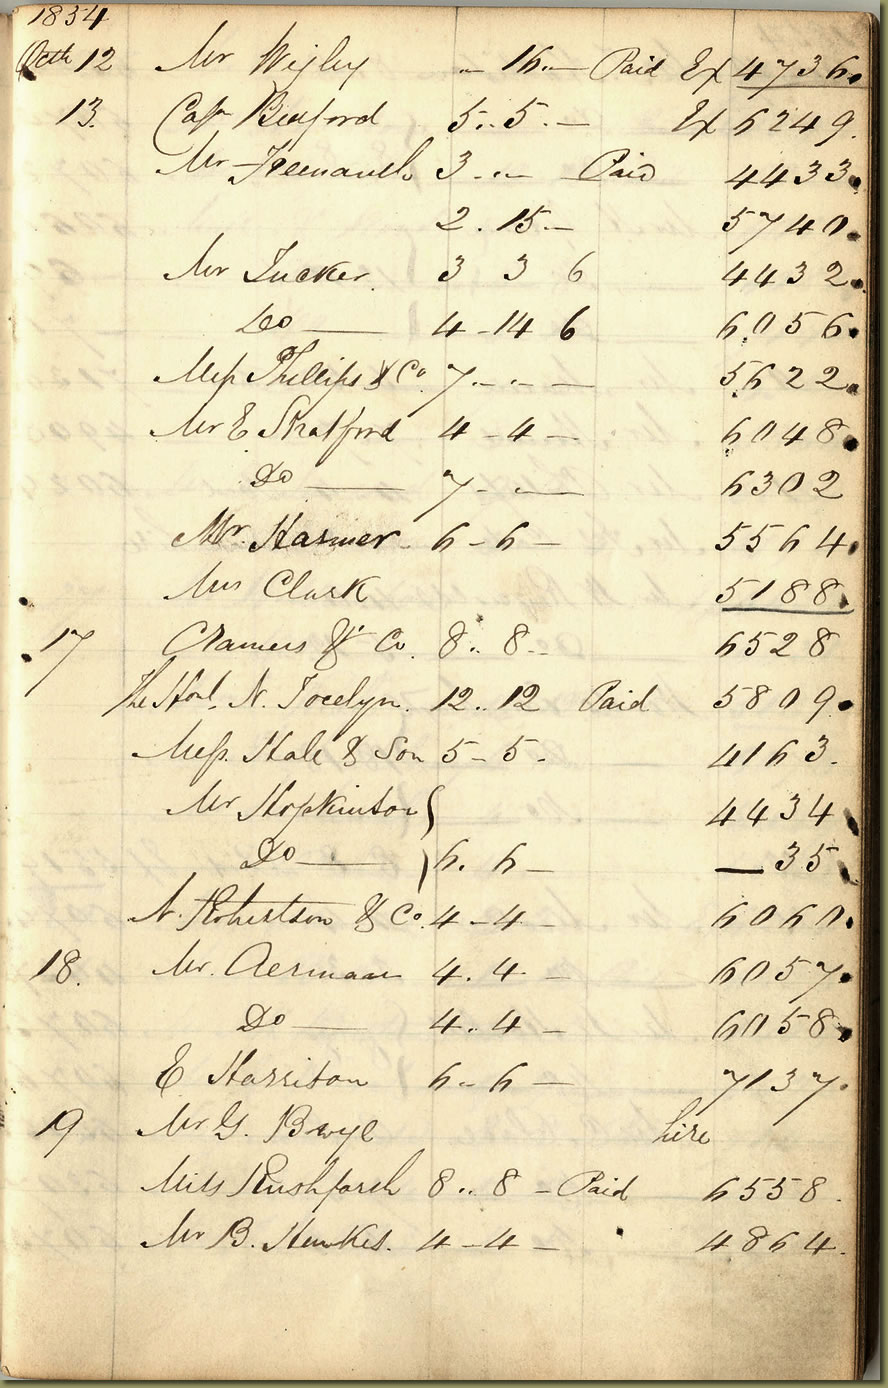 1854
Octr 12 Mr Wigley " 16 " — Paid Ex 4736.
13. Capn Bedford 5 .. 5 . — Ex 6249.
Mr 3 - " - Paid 4433.
2 . 15 - 5740.
Mr Tucker. 3 3 6 4432.
Do — 4 - 14 6 6056.
Mess Phillips & Co. 7 - " - 5622.
Mr E Stratford 4 - 4 — 6048.
Do — 7 - " — 6302
Mr. Harmer - 6 - 6 — 5564.
Mrs Clark 5188.
17 Cramers & Co. 8 .. 8 - 6528
The Honl. N. Jocelyn. 12 .. 12 Paid 5809.
Mess. Hale & Son 5 - 5 . 4163.
Mr Hopkinson } 4434
Do — } 6 . 6 — — 35.
N. Robertson & Co. 4 - 4 — 6060.
18. Mr. 4 . 4 — 6057.
Do — 4 .. 4 — 6058.
E Harrison 6 - 6 — 7137.
19 Mr G. hire
Miss Rushforth 8 .. 8 - Paid 6558.
Mr B. Hawkes. 4 - 4 — 4864.